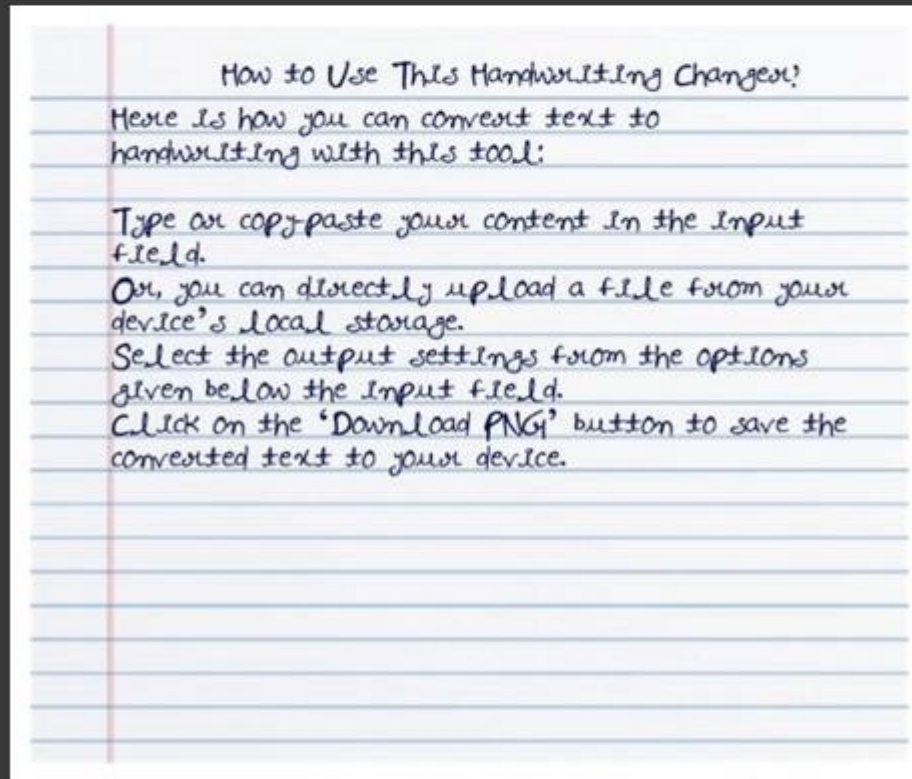 How to Use This Handwriting Changer?
Here is how you can convert text to
handwriting with this tool:
Type or copy-paste your content in the input
field.
Or, you can directly upload a file from your
device's local storage.
Select the output settings from the options
given below the input field.
Click on the 'Download PNG' button to save the
converted text to your device.